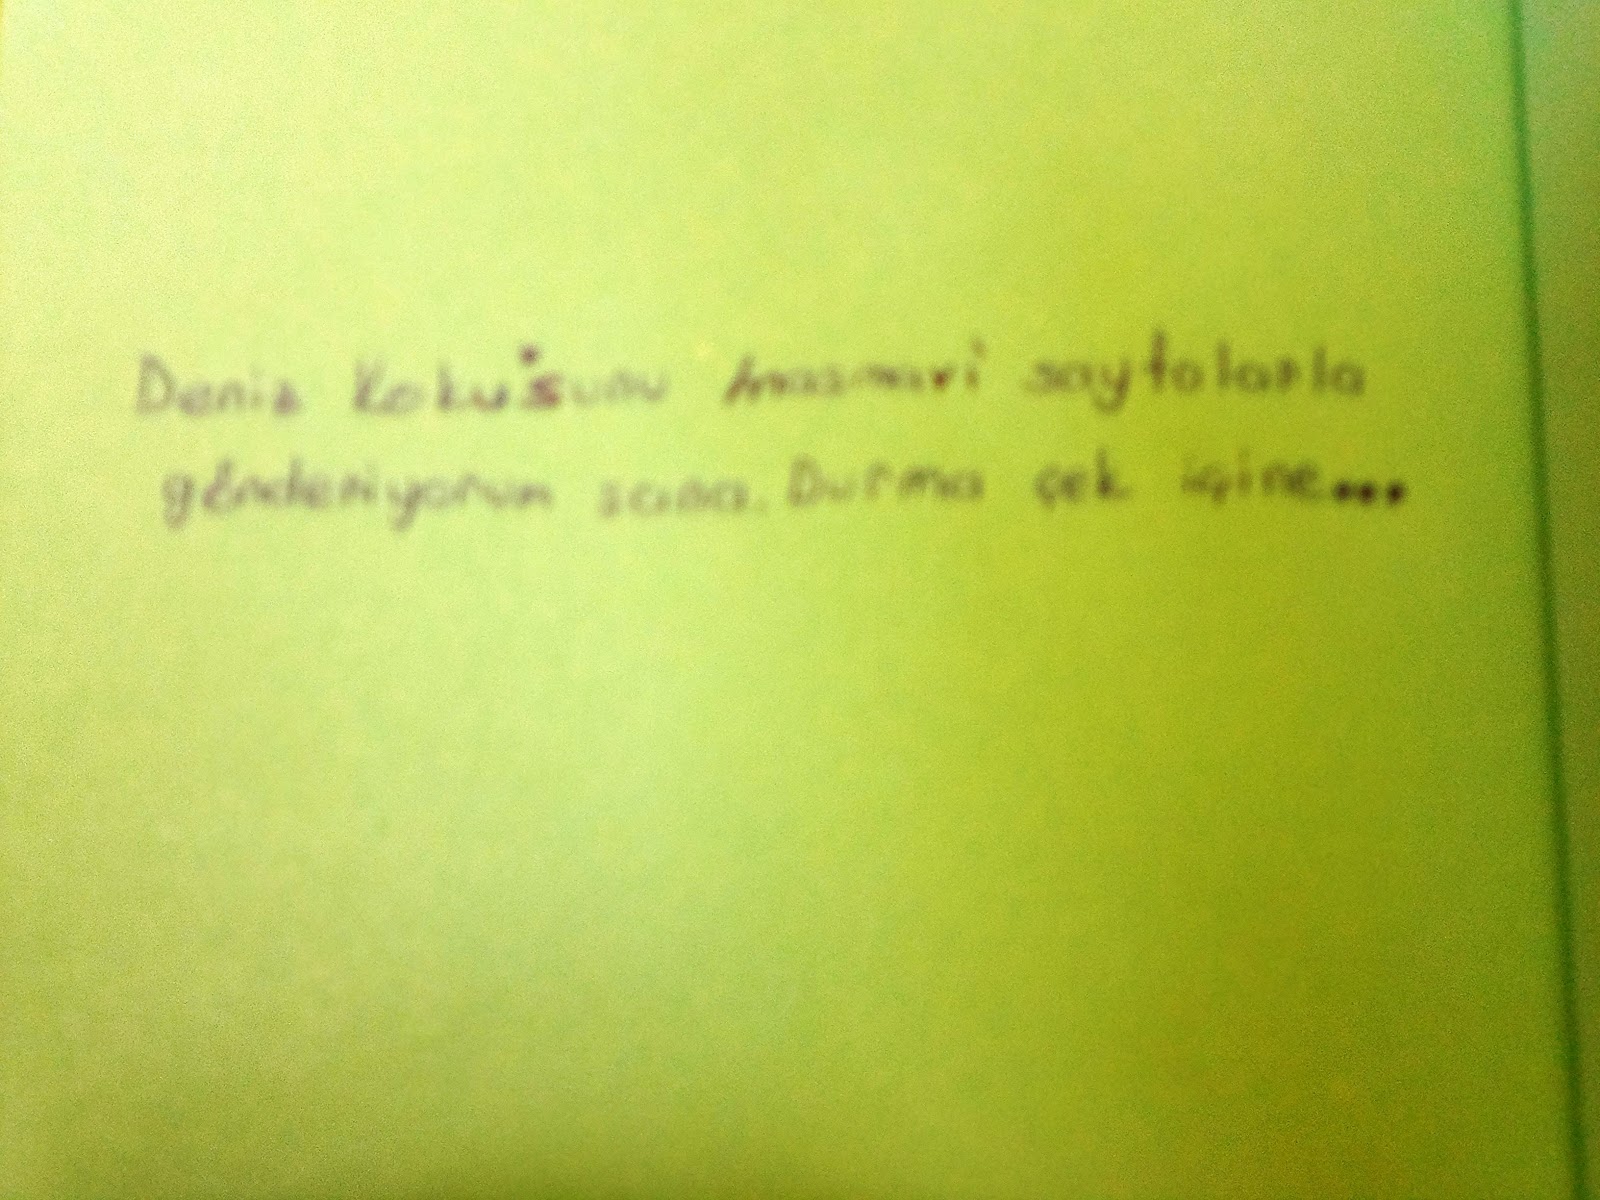 Deniz kokusunu masmavi sayfalarla
gönderiyorum sana. Durma çek içine...